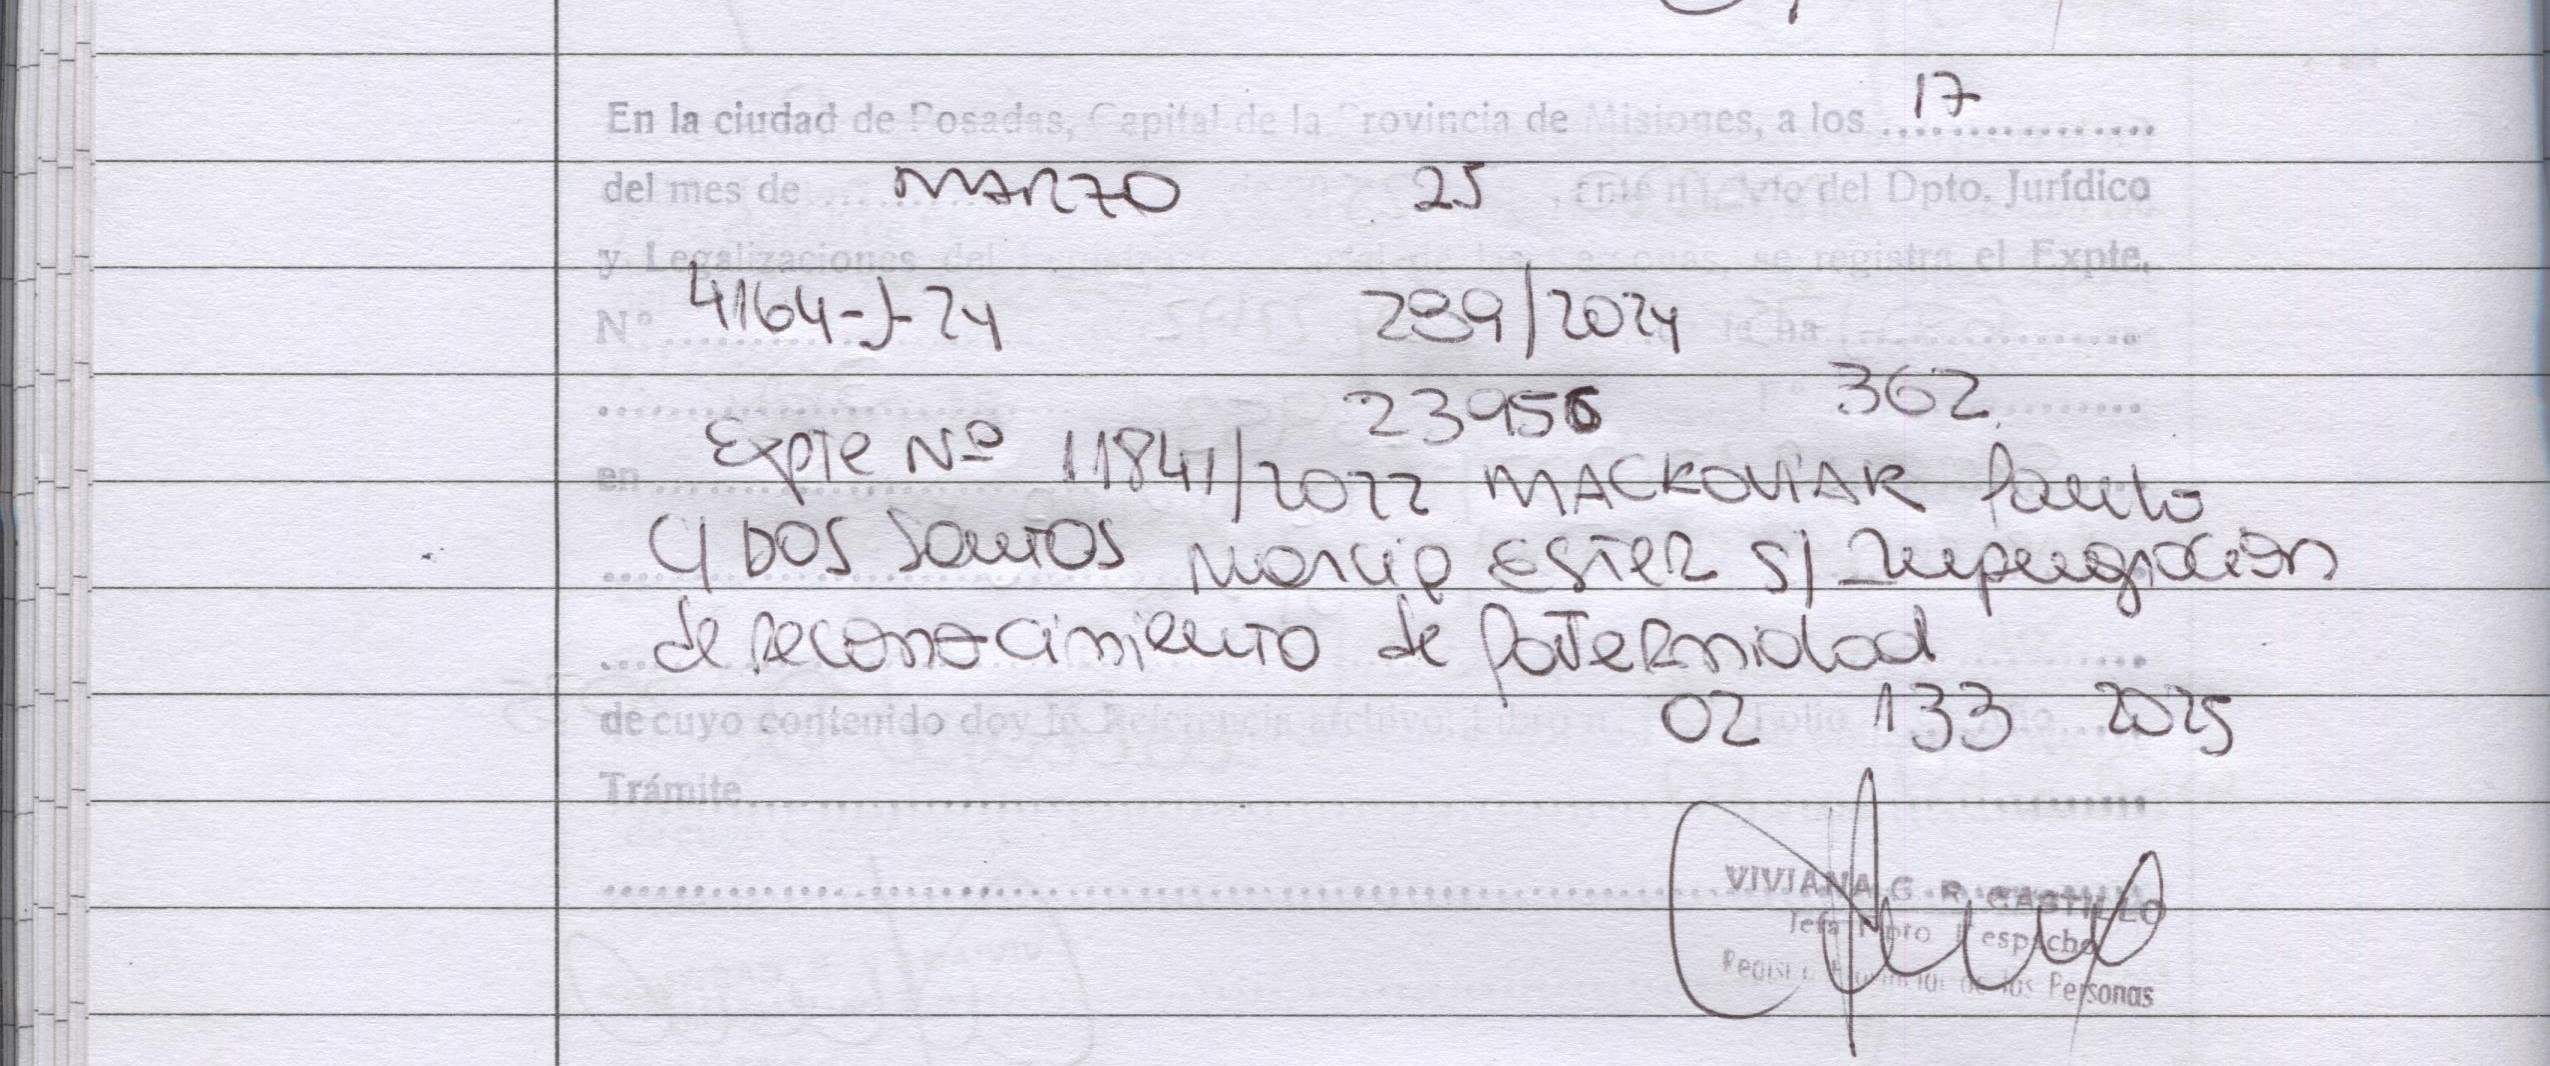 En la ciudad de Posadas, Capital de la Provincia de Misiones, a los 17
del mes de MARZO 25, ante mí, del Dpto. Jurídico
y Legalizaciones del las Personas, se registra el Expte.
Nº 4164-J-24 289/2024 fecha
23956 362
en Expte Nº 11841/2022 MACKOVIAK Paulo
C/ DOS SANTOS Marcia ESTER S/ Impugnación
de reconocimiento de Paternidad
02 133 2025
de cuyo contenido doy fé. Referencia archivo, Libro Folio
Trámite
VIVIANA G. R. CASTILLO
Jefa Dpto Despacho
Registro Provincial de las Personas